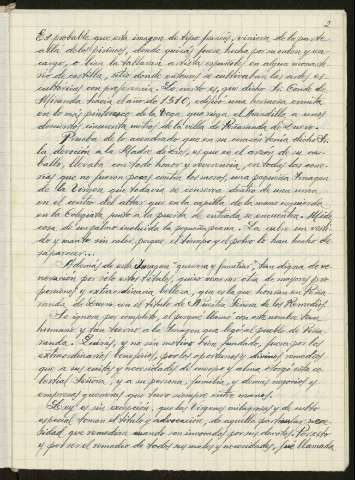 2
Es probable que esta imagen de tipo francés, viniera de la parte
allá de los Pirineos, donde quizás fuese hecha por su orden y en-
cargo, o bien la tallaran artistas españoles en algún monaste-
rio de Castilla, sitio donde entonces se cultivaban las artes es-
cultóricas con preferencia. Lo cierto es, que dicho Sr. Conde de
Miranda hacia el año de 1510, edificó una hermosa ermita
en lo más pintoresco de la Vega, que riega el Bañuelos a unos
doscientos cincuenta metros de la villa de Peñaranda de Duero.
Prueba de lo acendrado que en su corazón tenía dicho Sr.
la devoción a la Madre de Dios, es que en el arzón de su ca-
ballo, llevaba con todo honor y reverencia, en todas las corre-
rías que no fueron pocas contra los moros, una pequeñita Imagen
de la Virgen, que todavía se conserva dentro de una urna
en el centro del altar que en la capilla de la mano izquierda
en la Colegiata, junto a la puerta de entrada se encuentra. Mide
cosa de un palmo incluida la pequeña peana. La cubre un vesti-
do y manto sin valor, porque el tiempo y el polvo lo han hecho de-
saparecer...
Además de esta Imagen "guerrera y primitiva", tan digna de ve-
neración por solo este título, quiso mandar otra de mayores pro-
porciones y extraordinaria belleza, que es la que honran en Peña-
randa de Duero, con el título de Nuestra Señora de los Remedios.
Se ignora por completo, el porqué llamó con este nombre tan
hermoso y tan tierno a la Imagen que legó al pueblo de Peña-
randa. Quizás, y no sin motivo bien fundado, fuera por los
extraordinarios beneficios, por los oportunos y divinos remedios
que a sus cuitas y necesidades del cuerpo y alma otorgó esta ce-
lestial Señora, y a su persona, familia, y demás negocios y
empresas guerreras que tuvo siempre entre manos.
Ley es sin excepción, que las Vírgenes milagrosas y de culto
especial toman el título y advocación, de aquella particular nece-
sidad que remedian cuando son invocadas por sus devotos. Por esto
y por ser el remedio de todos sus males y necesidades, fué llamada